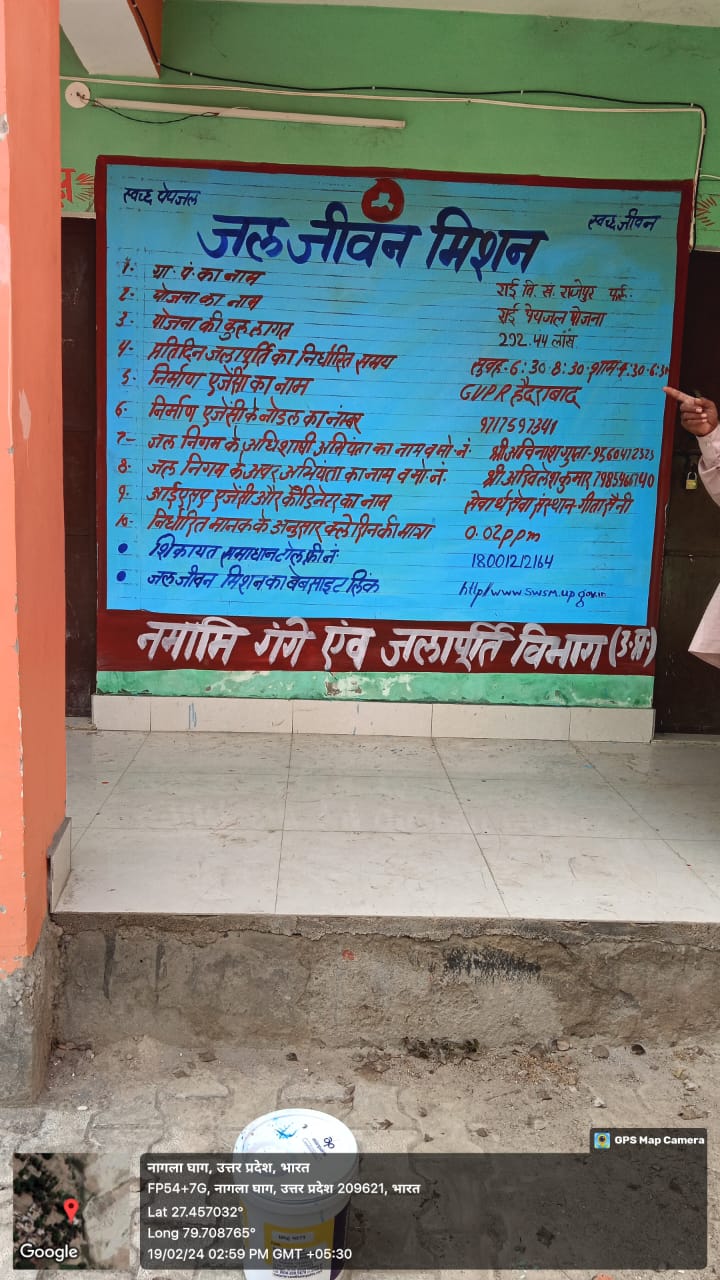 स्वच्छ पेयजल
स्वच्छ जीवन
जल जीवन मिशन
1- ग्रा. पं. का नाम राई वि. ख. राजेपुर
2- योजना का नाम राई पेयजल योजना
3- योजना की कुल लागत 292.44 लाख
4- प्रतिदिन जलापूर्ति का निर्धारित समय सुबह-6:30-8:30-शाम-4:30-6:30
5- निर्माण एजेंसी का नाम GVPR हैदराबाद
6- निर्माण एजेंसी के नोडल का नंबर 9717597341
7- जल निगम के अधिशाषी अभियंता का नाम व मो. नं. श्री अविनाश गुप्ता-
8- जल निगम के अवर अभियंता का नाम व मो. नं. श्री अखिलेश कुमार
9- आईएसए एजेंसी और कॉर्डिनेटर का नाम सेवार्थ सेवा संस्थान-गीता सैनी
10- निर्धारित मानक के अनुसार क्लोरिन की मात्रा 0.02ppm
• शिकायत समाधान टोल फ्री नं. 18001212164
• जल जीवन मिशन का वेबसाइट लिंक http//www.swsm.up.gov.in
नमामि गंगे एंव जलापूर्ति विभाग (उ.प्र.)
GPS Map Camera
नागला घाग, उत्तर प्रदेश, भारत
FP54+7G, नागला घाग, उत्तर प्रदेश 209621, भारत
Lat 27.457032°
Long 79.708765°
19/02/24 02:59 PM GMT +05:30
Google